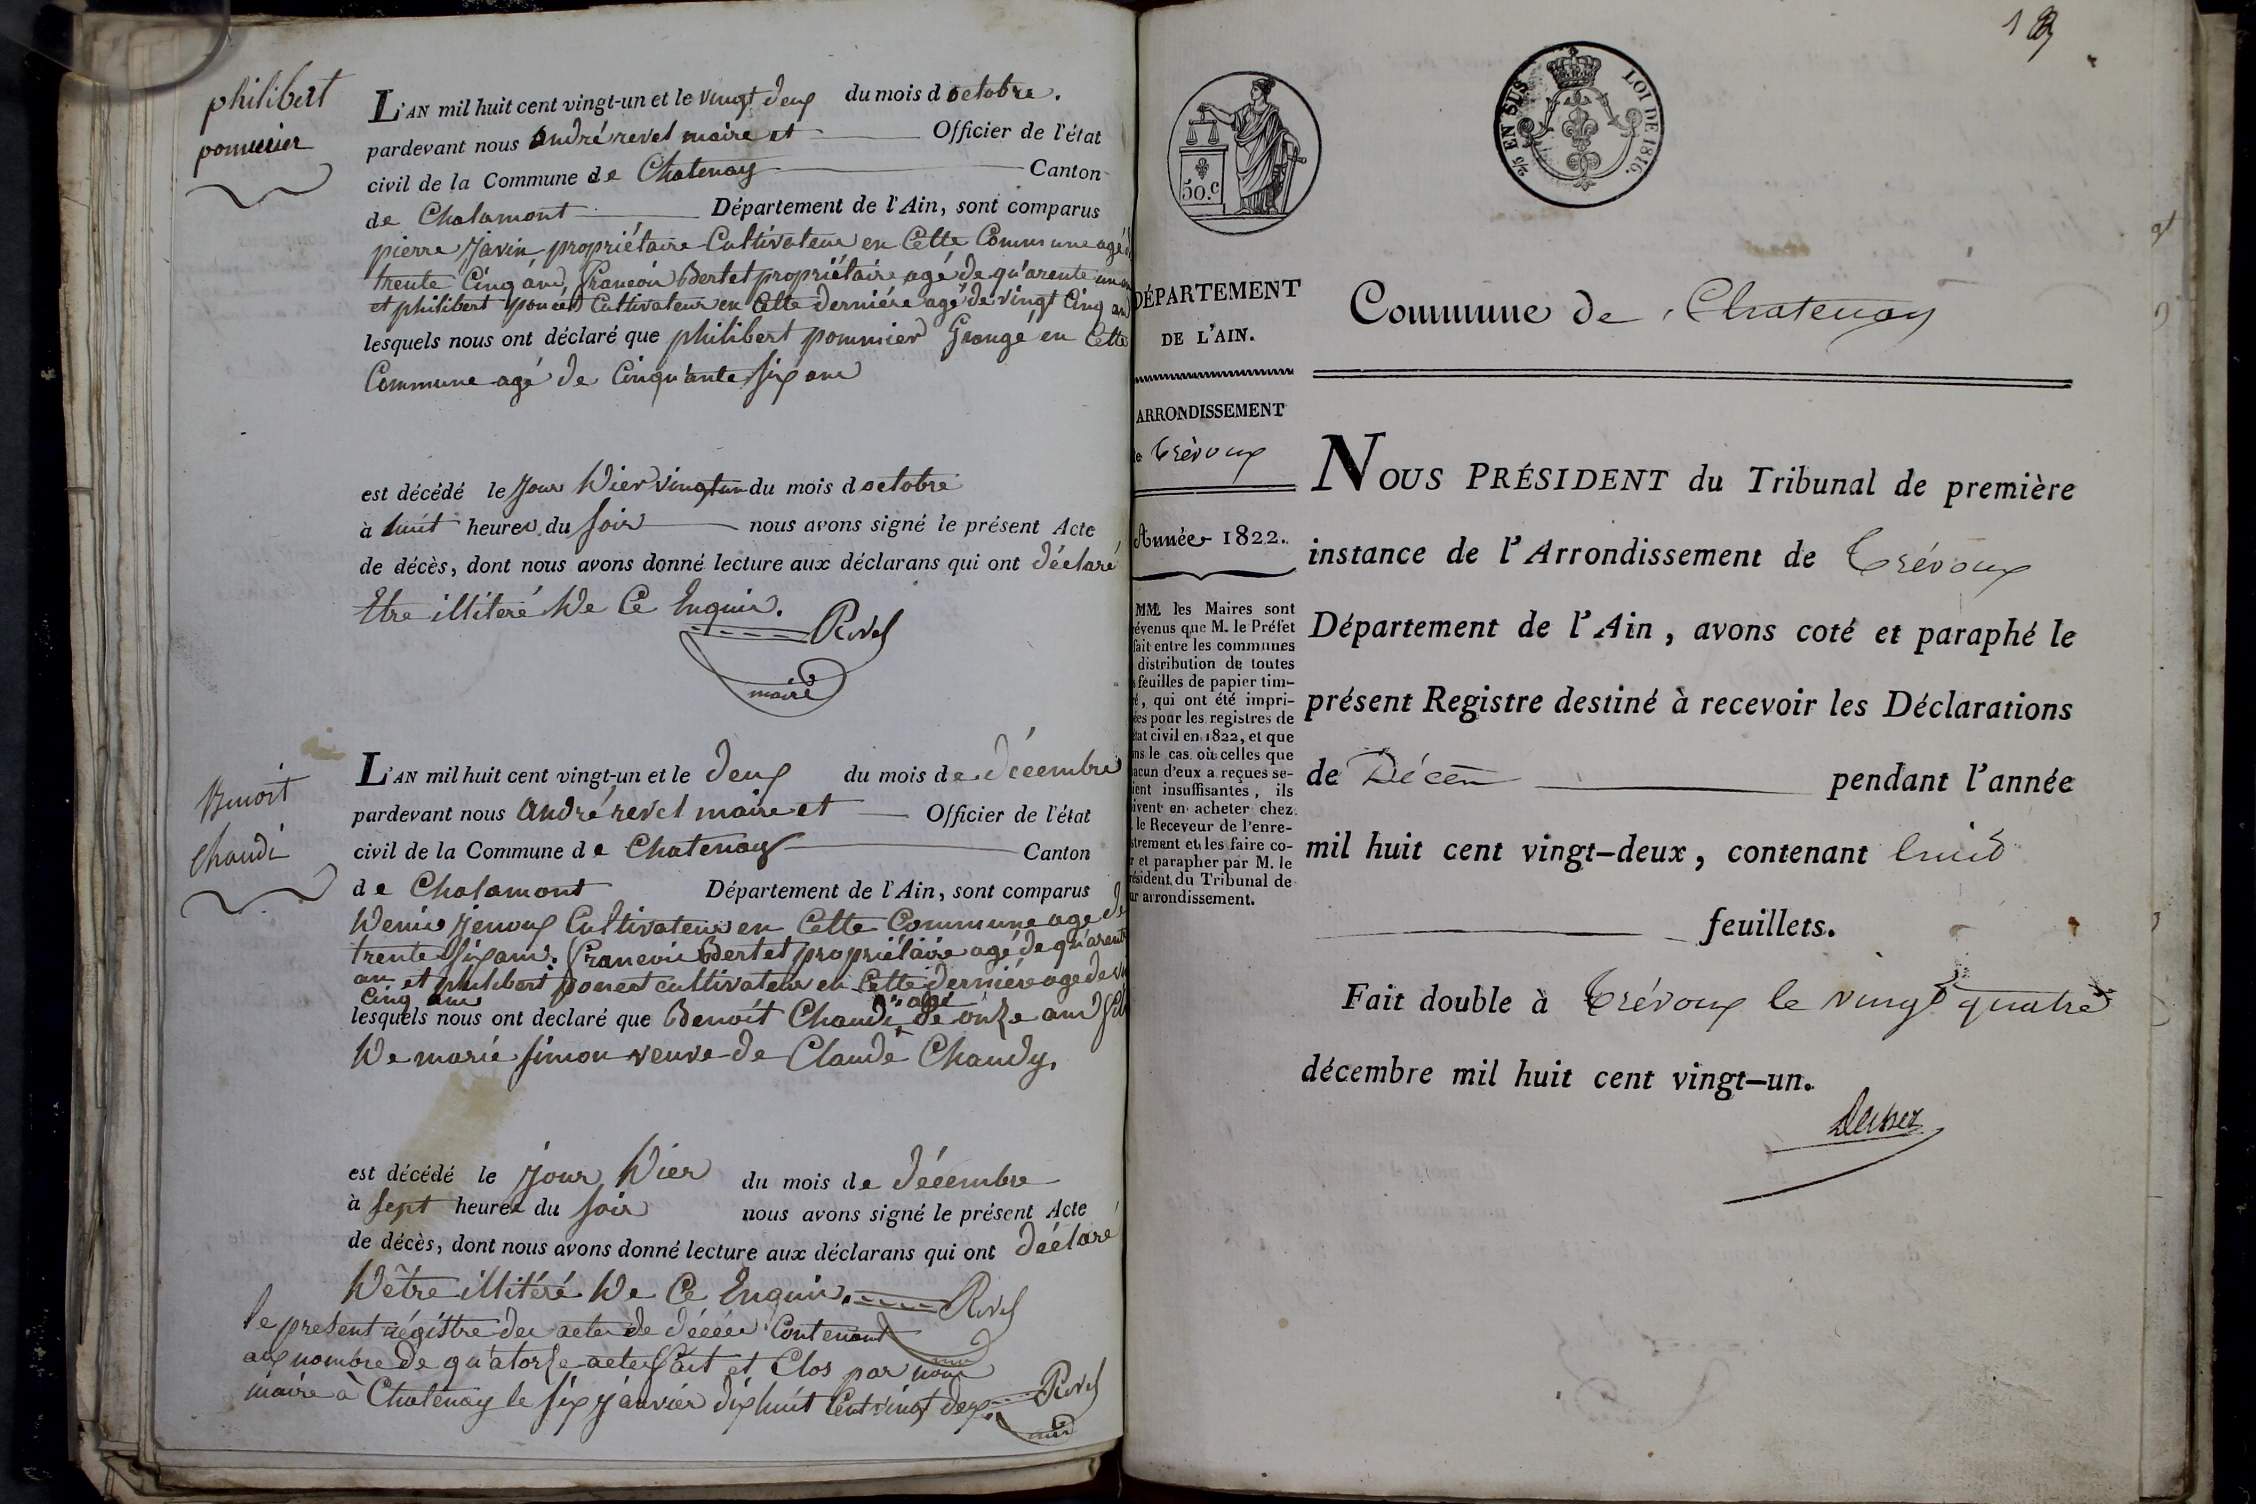 philibert
pommier
L'AN mil huit cent vingt-un et le vingt deux du mois d octobre.
pardevant nous andré revel maire et Officier de l'état
civil de la Commune de Chatenay Canton
de Chalamont Département de l'Ain, sont comparus
pierre Javin propriétaire Cultivateur en Cette Commune agé d
trente Cinq ans, francois Bertet propriétaire agé de qu'arente un an
et philibert poncet Cultivateur en Cette derniére agé de vingt Cinq ans
lesquels nous ont déclaré que philibert pommier Grangé en Cette
Commune agé de Cinqu'ante six ans
est décédé le Jour hier vingtun du mois d octobre
à huit heures du soir nous avons signé le présent Acte
de décès, dont nous avons donné lecture aux déclarans qui ont déclaré
Etre illiteré de Ce Enquis. Revel
maire
Benoit
Chaudi
L'AN mil huit cent vingt-un et le deux du mois de décembre
pardevant nous andré revel maire et Officier de l'état
civil de la Commune de Chatenay Canton
de Chalamont Département de l'Ain, sont comparus
Denis Jenoux Cultivateur en Cette Commune agé de
trente six ans. francois Bertet propriétaire agé de qu'arente
an et philibert poncet cultivateur en Cette derniére age de
Cinq ans
agé
lesquels nous ont déclaré que Benoit Chaudi, de onze ans fils
De marie simon veuve de Claude Chaudy.
est décédé le Jour hier du mois de décembre
à sept heures du soir nous avons signé le présent Acte
de décès, dont nous avons donné lecture aux déclarans qui ont déclaré
D'être illitéré De Ce Enquis. Revel
le present régistre des actes de décées Contenant
aux nombre de qu'atorze actes fait et Clos par nous
maire à Chatenay le six Janvier dix huit Cent vingt deux. Revel
18
50.C
2/5 EN SUS
LOI DE 1816.
DÉPARTEMENT
DE L'AIN.
ARRONDISSEMENT
de Trévoux
Année 1822.
MM. les Maires sont
révenus que M. le Préfet
fait entre les communes
distribution de toutes
s feuilles de papier tim-
ré, qui ont été impri-
ées pour les registres de
état civil en 1822, et que
ns le cas où celles que
acun d'eux a reçues se-
ient insuffisantes, ils
oivent en acheter chez
le Receveur de l'enre-
strement et les faire co-
r et parapher par M. le
résident du Tribunal de
ur arrondissement.
Commune de Chatenay
NOUS PRÉSIDENT du Tribunal de première
instance de l'Arrondissement de Trévoux
Département de l'Ain, avons coté et paraphé le
présent Registre destiné à recevoir les Déclarations
de Décès pendant l'année
mil huit cent vingt-deux, contenant huit
feuillets.
Fait double à Trévoux le vingt quatre
décembre mil huit cent vingt-un.